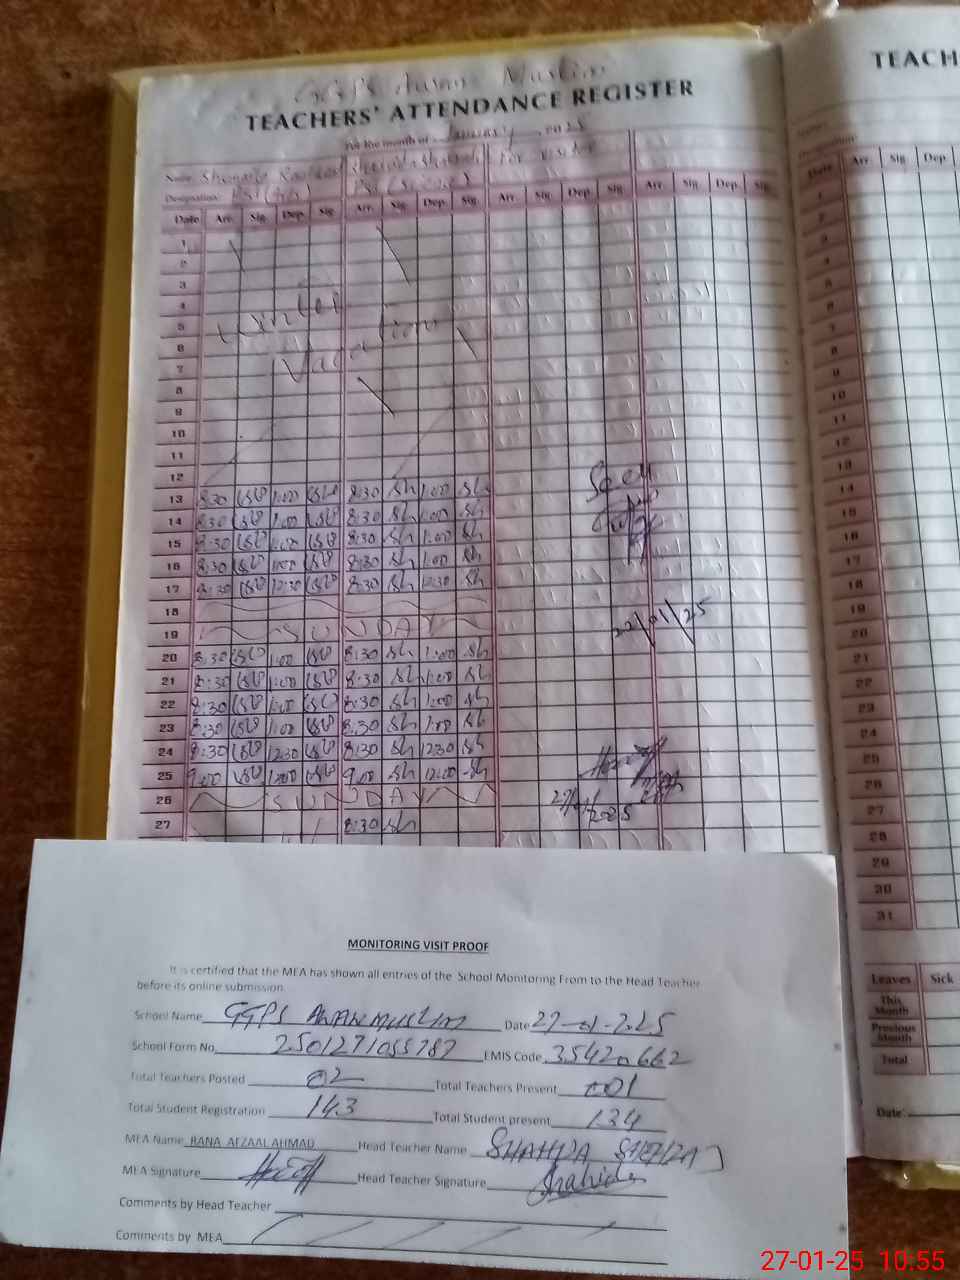 GGPS Awan Muslim
TEACHERS' ATTENDANCE REGISTER
For the month of January 2025
Name For visitor
Designation PST (Arts) PST (Science)
Date Arr. Sig. Dep. Sig. Arr. Sig. Dep. Sig. Arr. Sig. Dep. Sig. Arr. Sig. Dep. Sig.
1
2
3
4
5 Winter
6
7 Vacation
8
9
10
11
12
13 8:30 1:00 8:30 Sh 1:00 Sh Seen
14 8:30 1:00 8:30 Sh 1:00 Sh
15 8:30 1:00 8:30 Sh 1:00 Sh
16 8:30 1:00 8:30 Sh 1:00 Sh
17 8:30 12:30 8:30 Sh 12:30 Sh
18
19 SUNDAY 22/01/25
20 8:30 1:00 8:30 Sh 1:00 Sh
21 8:30 1:00 8:30 Sh 1:00 Sh
22 8:30 1:00 8:30 Sh 1:00 Sh
23 8:30 1:00 8:30 Sh 1:00 Sh
24 8:30 12:30 8:30 Sh 12:30 Sh
25 9:00 12:00 9:00 Sh 12:00 Sh
26 SUNDAY 27/01/2025
27 8:30 Sh
TEACH
Date Arr. Sig. Dep.
1
2
3
4
5
6
7
8
9
10
11
12
13
14
15
16
17
18
19
20
21
22
23
24
25
26
27
28
29
30
31
Leaves Sick
This Month
Previous Month
Total
Date:
MONITORING VISIT PROOF
It is certified that the MEA has shown all entries of the School Monitoring From to the Head Teacher
before its online submission.
School Name GGPS AWAN MUSLIM Date 27-01-2025
School Form No. 2501271055787 EMIS Code 35420662
Total Teachers Posted 02 Total Teachers Present 01
Total Student Registration 143 Total Student present 134
MEA Name RANA AFZAAL AHMAD Head Teacher Name SHAHIDA SHEHZAD
MEA Signature Head Teacher Signature Shahida
Comments by Head Teacher
Comments by MEA
27-01-25 10.55